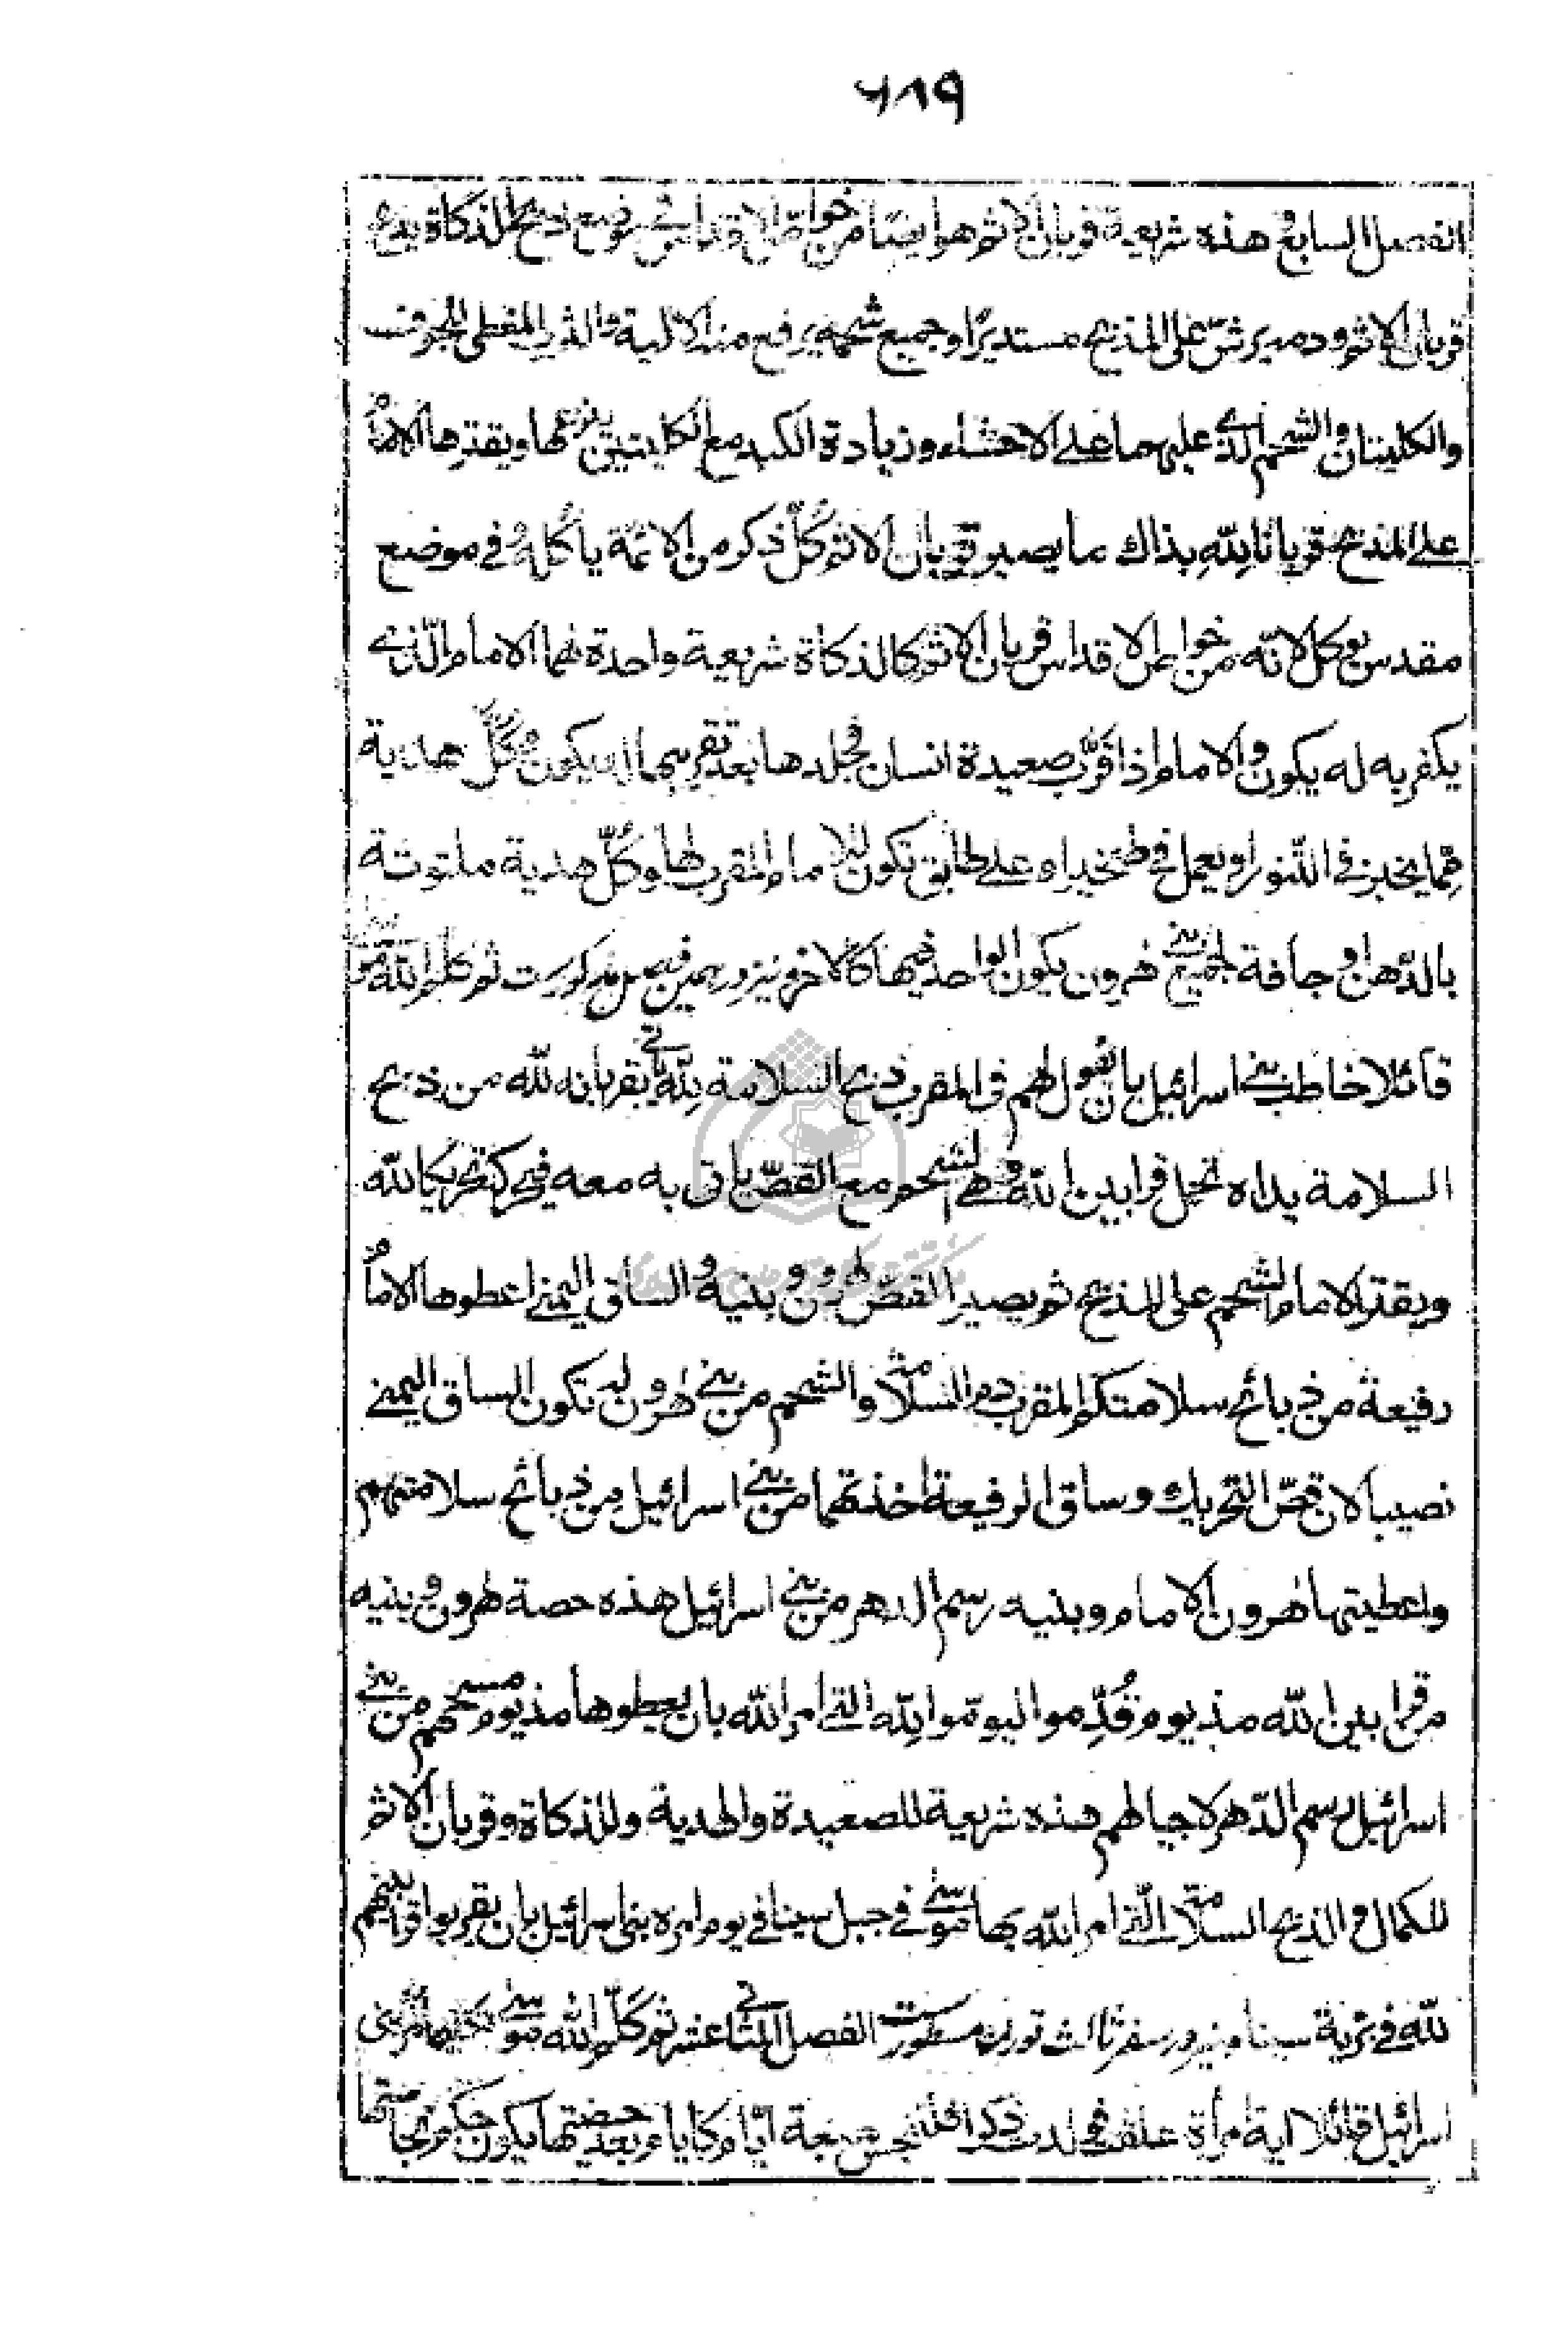 ٦٨٩
الفصل السابع هذه شريعة قربان الاثم هو ايضا من خواص الاقداس في موضع تذبح الذكاة يذبح
قربان الاثم ودمه يرش على المذبح مستديرا وجميع شحمه يرفع منه الالية والثرب المغطى الجوف
والكليتان والشحم الذى عليهما على الاحشاء وزيادة الكبد مع الكليتين ينزعها ويقترها الامام
على المذبح قربانا لله بذاك ما يصير قربان الاثم كل ذكر من الائمة ياكله في موضع
مقدس يوكل لانه من خواص الاقداس قربان الاثم كالذكاة شريعة واحدة لهما الامام الذى
يكفر به له يكون والامام اذا قرب صعيدة انسان فجلدها بعد تقريبها له يكون وكل هدية
مما يخبز في التنور او يعمل في طنجير او على طابق تكون للامام المقرب لها وكل هدية ملتوتة
بالدهن وجافة لجميع بنى هرون يكون الواحد فيها كالاخر ونيز در همين فصل مذكورست ثم كلم الله موسى
قائلا خاطب بنى اسرائيل بان تقول لهم في المقرب ذبح السلامة لله ياتى بقربانه لله من ذبح
السلامة يداه تحمل قرابين الله وهي الشحم مع القص ياتى به معه فيحركه تحريكا لله
ويقتر الامام الشحم على المذبح ثم يصير القص لهرون وبنيه والساق اليمنى اعطوها الامام
رفيعة من ذبائح سلامتكم المقرب دم السلامة والشحم من بنى هرون له تكون الساق اليمنى
نصيبا لان قص التحريك وساق الرفيعة اخذتهما من بنى اسرائيل من ذبائح سلامتهم
واعطيتها هرون الامام وبنيه رسم الدهر من بنى اسرائيل هذه حصة هرون وبنيه
من قرابين الله مذ يوم قدموا ليوموا لله التى امر الله بان يعطوها مذ يوم مسحهم من بنى
اسرائيل رسم الدهر لاجيالهم هذه شريعة للصعيدة والهدية وللذكاة وقربان الاثم
للكمال والذبح السلامة التى امر الله بها موسى في جبل سينا في يوم امره بنى اسرائيل بان يقربوا قرابينهم
لله في برية سينا ونيز در سفر ثالث تورية مسطورست الفصل الثانى عشر ثم كلم الله موسى تكليما مر بنى
اسرائيل قائلا اية امرأة علقت فولدت ذكرا فلتنجس سبعة ايام كايام بعد حيضتها يكون حكم نجاستها